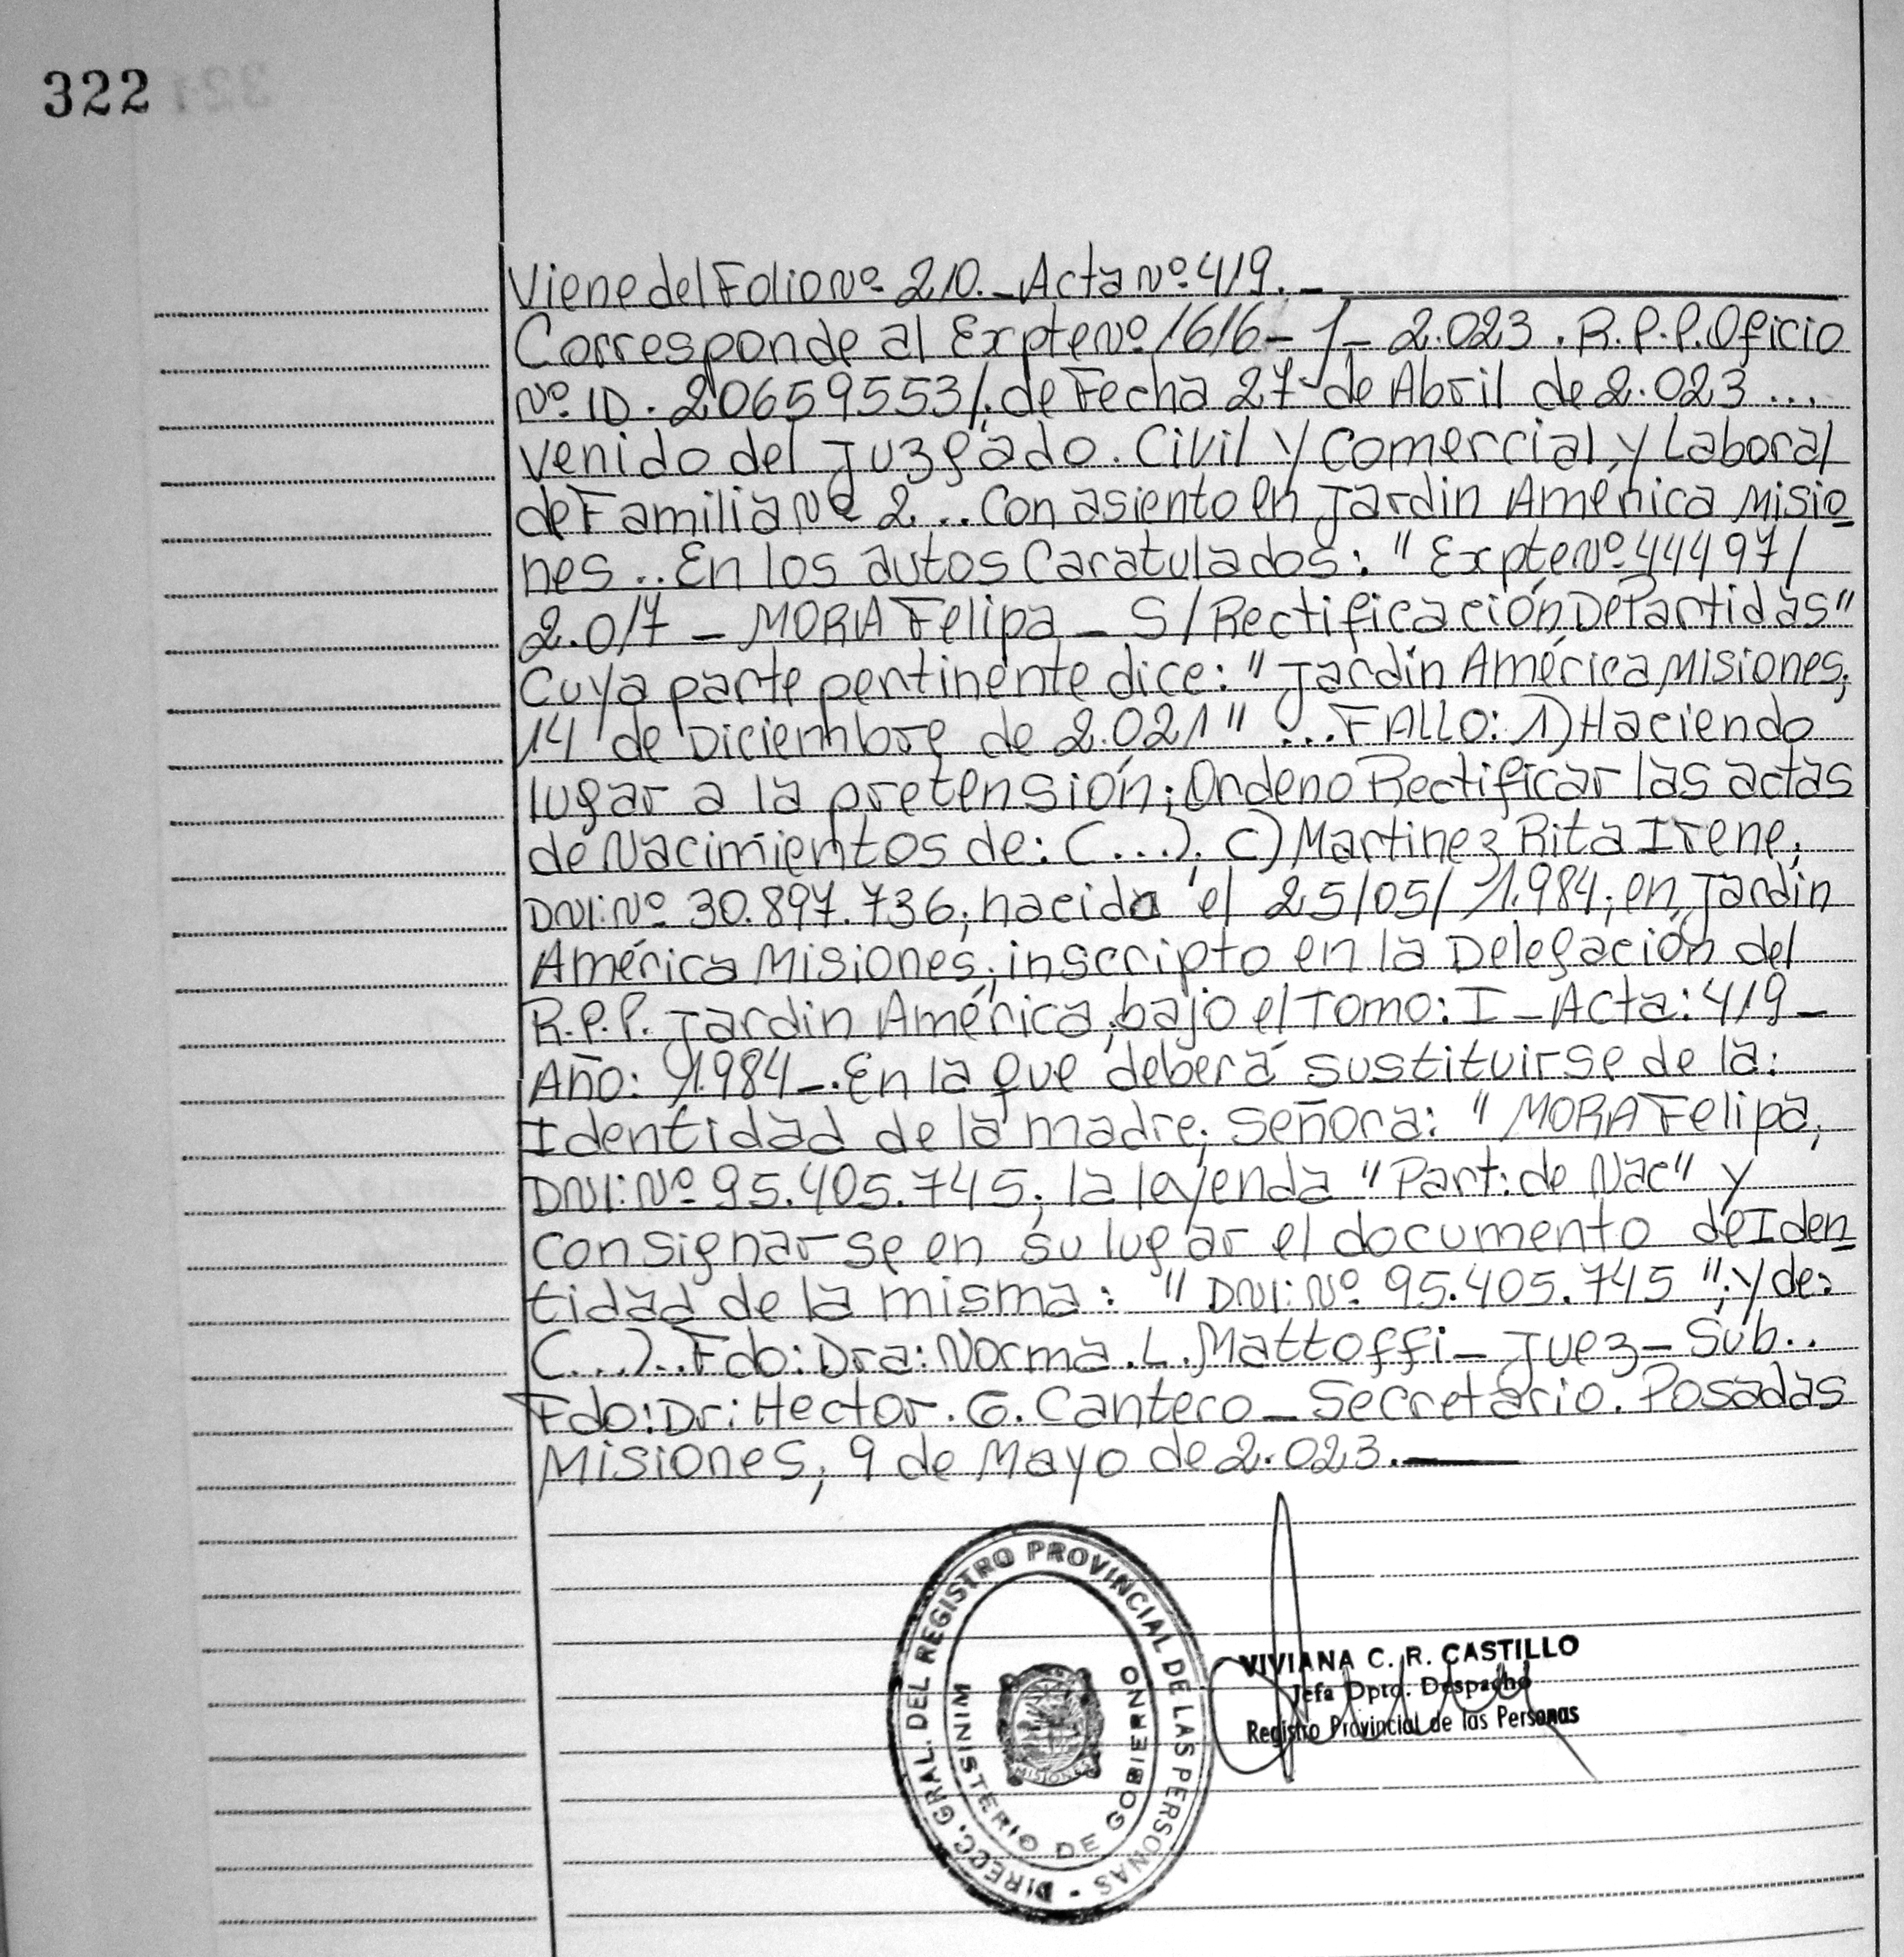 322
Viene del Folio Nº 210.- Acta Nº 419.-
Corresponde al Expte Nº 1616-J-2.023. R.P.P. Oficio
Nº ID. 20659553/. de Fecha 27 de Abril de 2.023...
venido del Juzgado. Civil y Comercial, y Laboral
de Familia Nº 2... Con asiento en Jardin América Misio
nes... En los autos Caratulados: "Expte Nº 44497/
2.017 - MORA Felipa - S/Rectificación De Partidas"
Cuya parte pertinente dice: "Jardin América Misiones,
14 de Diciembre de 2.021" ... FALLO: 1) Haciendo
lugar a la pretensión; Ordeno Rectificar las actas
de Nacimientos de: (...). C) Martinez Rita Irene,
DNI: Nº 30.897.736, nacida el 25/05/1.984, en Jardin
América Misiones, inscripto en la Delegación del
R.P.P. Jardin América, bajo el Tomo: I - Acta: 419 -
Año: 1.984 -. En la que deberá sustituirse de la:
Identidad de la madre, Señora: "MORA Felipa,
DNI: Nº 95.405.745, la leyenda "Part: de Nac" y
consignarse en su lugar el documento de Iden
tidad de la misma: "DNI: Nº 95.405.745"; y de:
(...)... Fdo: Dra: Norma. L. Mattoffi - Juez - Sub..
Fdo: Dr: Hector. G. Cantero - Secretario. Posadas
Misiones, 9 de Mayo de 2.023.
DIRECC. GRAL. DEL REGISTRO PROVINCIAL DE LAS PERSONAS -
MINISTERIO DE GOBIERNO
MISIONES
VIVIANA C. R. CASTILLO
Jefa Dpto. Despacho
Registro Provincial de las Personas